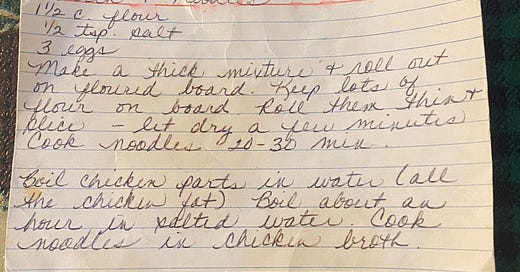 Noodles
1 1/2 c flour
1/2 tsp. salt
3 eggs
Make a thick mixture + roll out
on floured board. Keep lots of
flour on board. Roll them thin +
slice - let dry a few minutes
Cook noodles 20-30 min.
Boil chicken parts in water (all
the chicken fat) Boil about an
hour in salted water. Cook
noodles in chicken broth.